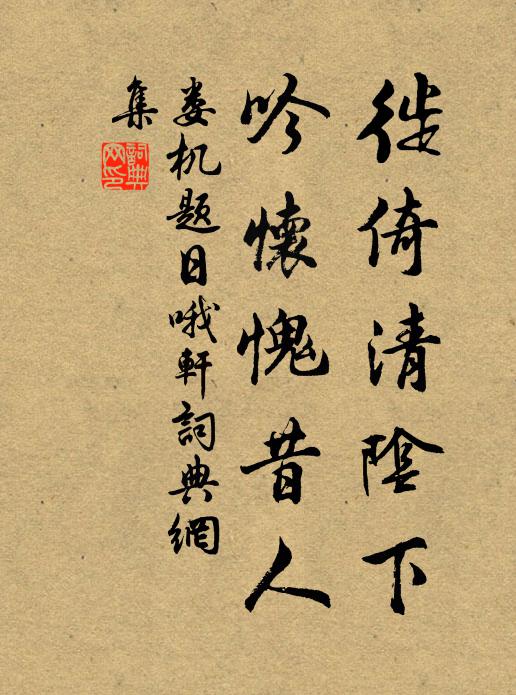 徙倚清陰下
吟懷愧昔人
娄机题日哦軒詞典網
集
詞典
网印